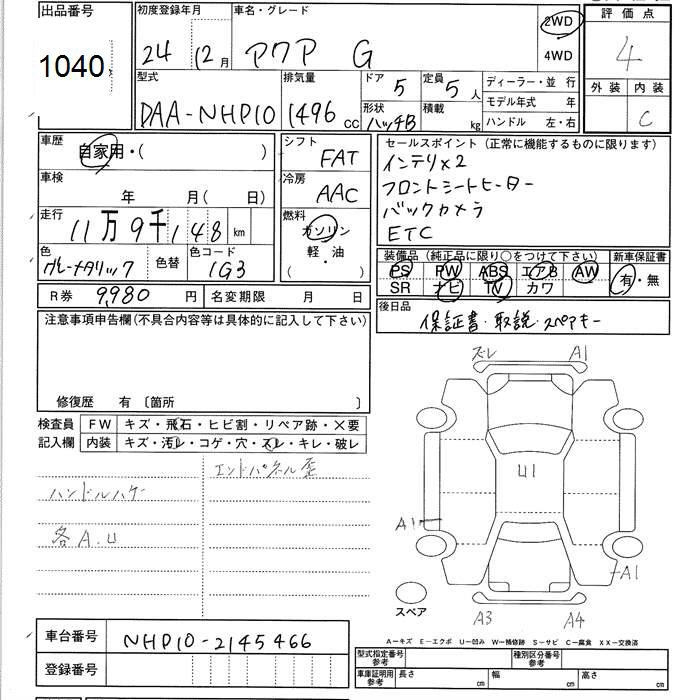 出品番号 初度登録年月 車名・グレード 2WD 評価点
1040 24 12月 アクア G 4WD 4
型式 排気量 ドア 5 定員 5人 ディーラー・並行 外装 内装
DAA-NHP10 1496cc 形状 ハッチB 積載 kg モデル年式 年 C
ハンドル 左・右
車歴 シフト セールスポイント(正常に機能するものに限ります)
自家用・( ) FAT インテリ×2
車検 冷房 フロントシートヒーター
年 月( 日) AAC バックカメラ
走行 燃料 ETC
11万9千148km ガソリン
色 色替 色コード 軽・油 装備品(純正品に限り○をつけて下さい) 新車保証書
グレーメタリック 1G3 ( ・ ) PS PW ABS エアB AW 有・無
SR ナビ TV カワ
R券 9,980円 名変期限 月 日 後日品
注意事項申告欄(不具合内容等は具体的に記入して下さい) 保証書・取説・スペアキー
ズレ A1
修復歴 有 〔箇所 〕
検査員 FW キズ・飛石・ヒビ割・リペア跡・×要
記入欄 内装 キズ・汚レ・コゲ・穴・スレ・キレ・破レ
エンドパネル歪 U1
ハンドルハゲ
各A.U A1
A1
スペア
A3 A4
車台番号 NHP10-2145466 A-キズ E-エクボ U-凹み W-補修跡 S-サビ C-腐食 XX-交換済
登録番号 型式指定番号 参考 種別区分番号 参考
車庫証明用 参考 長さ cm 幅 cm 高さ cm